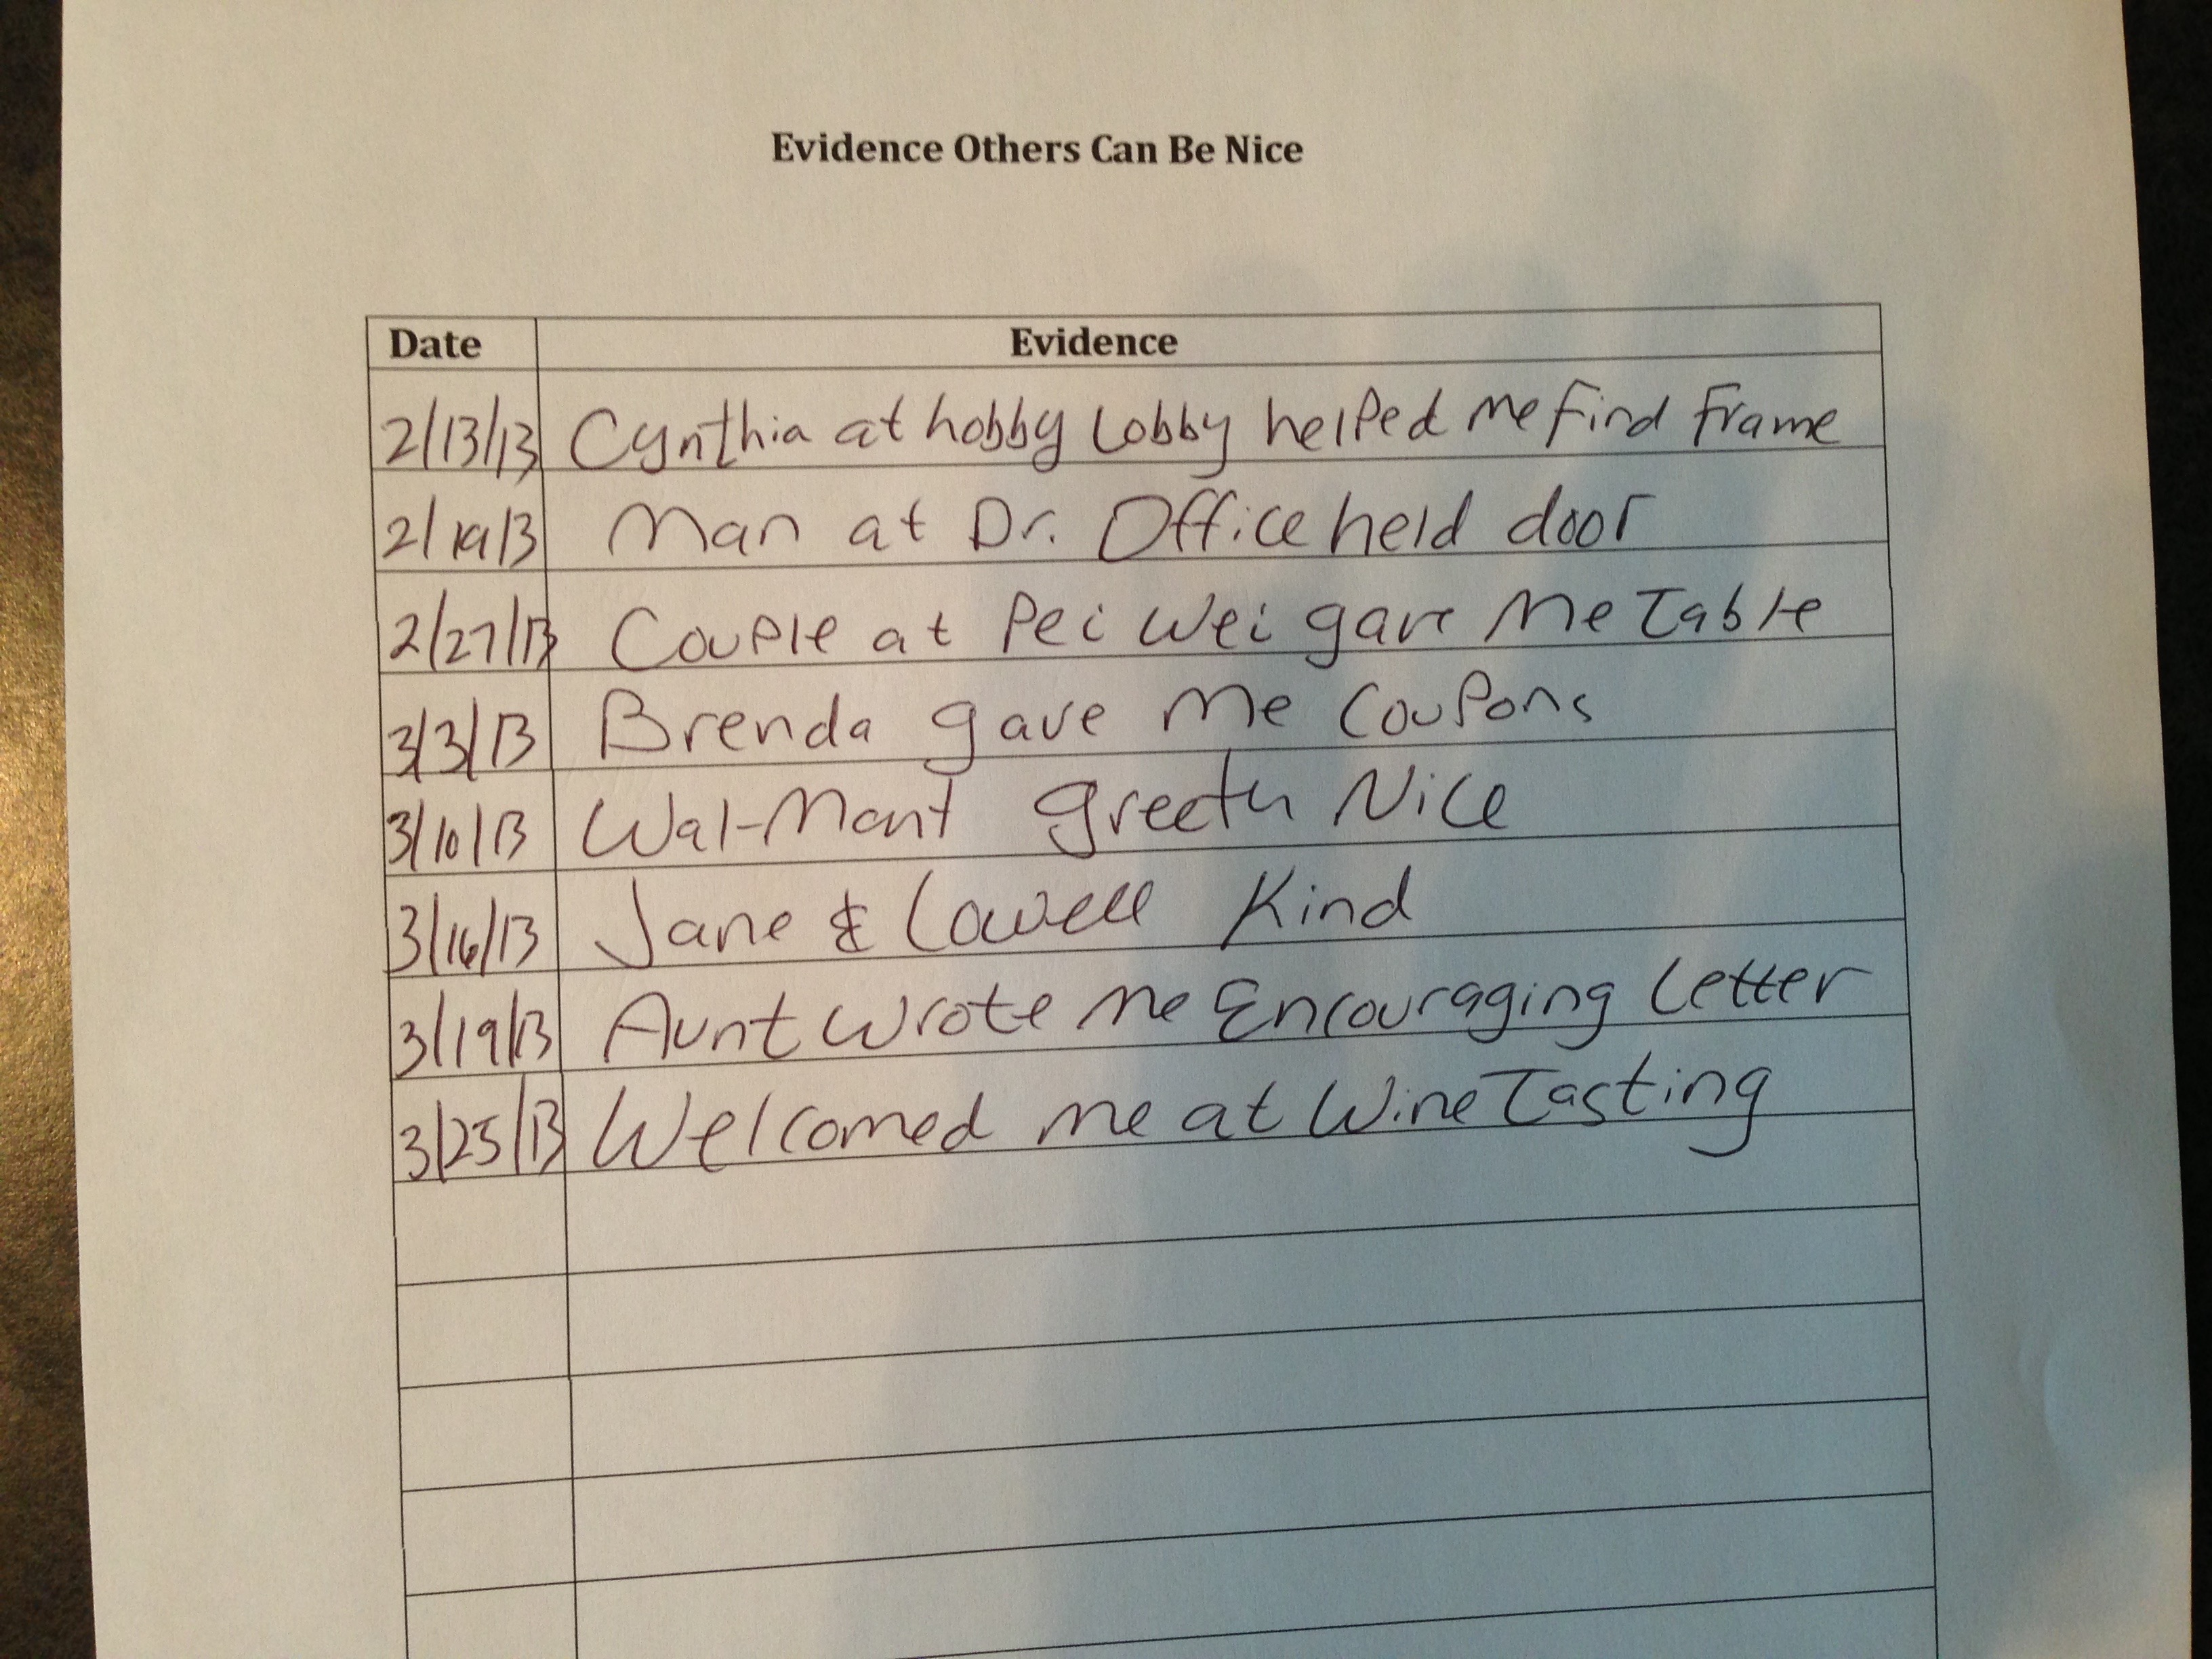 Evidence Others Can Be Nice
Date Evidence
2/13/13 Cynthia at hobby Lobby helped me find frame
2/19/13 Man at Dr. Office held door
2/27/13 Couple at Pei Wei gave me Table
3/3/13 Brenda gave me Coupons
3/10/13 Wal-Mart greeter Nice
3/16/13 Jane & Lowell Kind
3/19/13 Aunt wrote me Encouraging Letter
3/25/13 Welcomed me at Wine Tasting